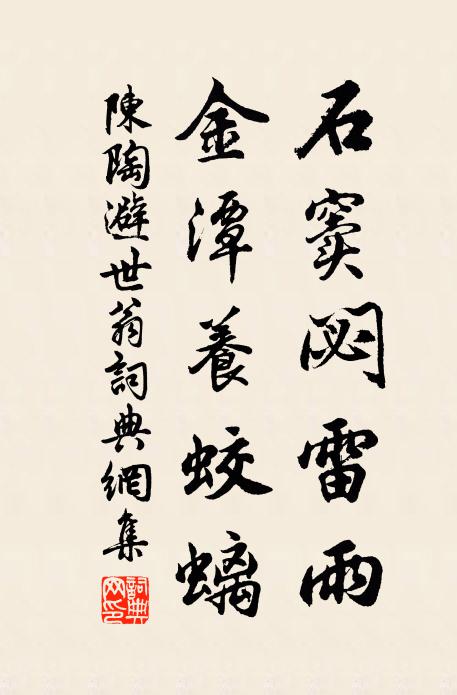 石竇閟雷雨
金潭養蛟螭
陳陶避世翁詞典網集
詞典網印